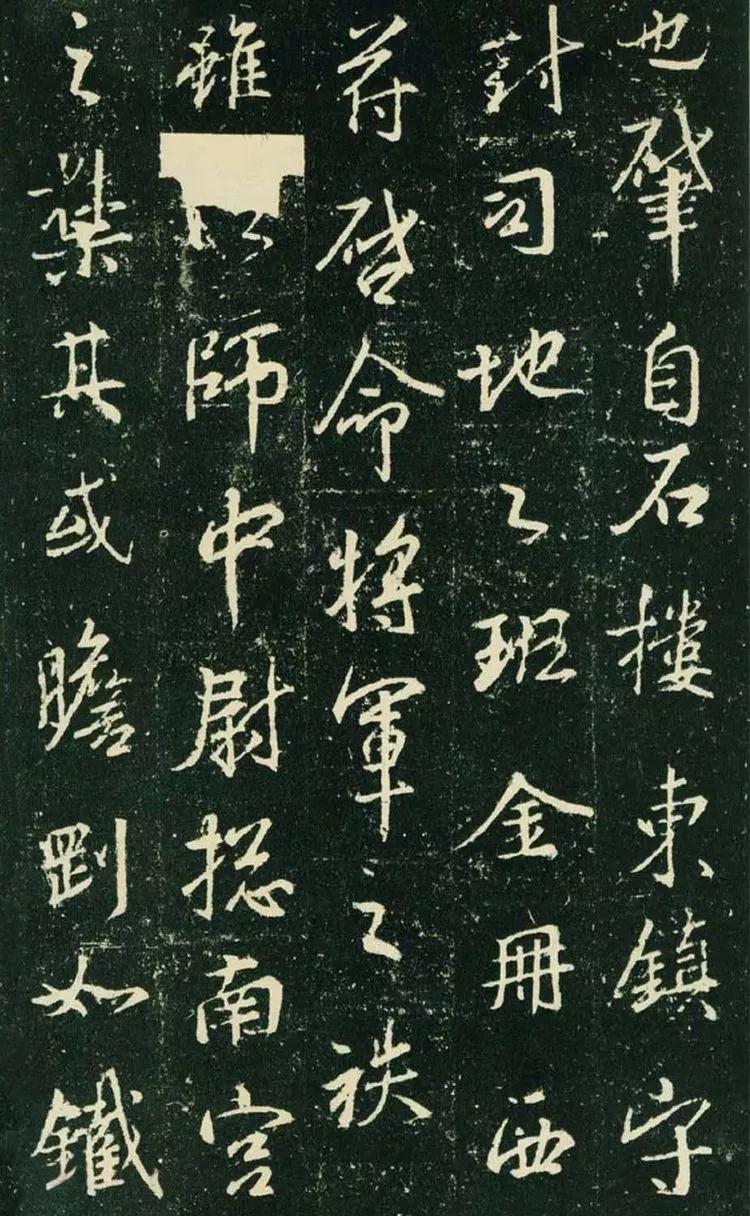 也肇自石楼東鎮守
封司地之班金冊西
苻啓命將軍之袟
雖以師中尉揔南宮
之禁其或瞻𠜍如鐵